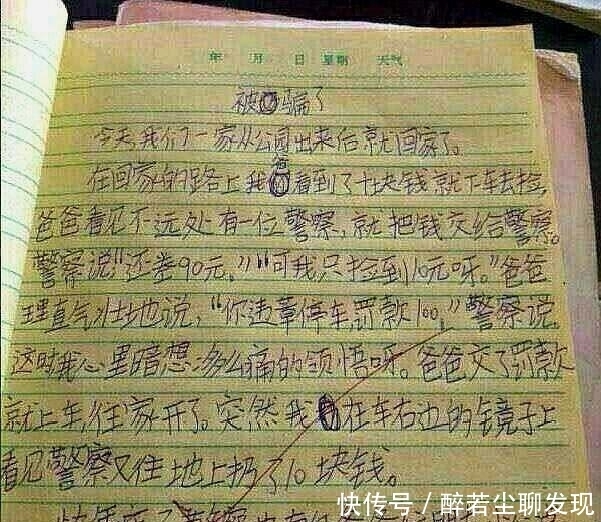 年 月 日 星期 天气
被骗了
今天,我们一家从公园出来后就回家了。
在回家的路上我爸看到了十块钱就下车去捡,
爸爸看见不远处有一位警察,就把钱交给警察。
警察说"还差90元,""可我只捡到10元呀。"爸爸
理直气壮地说,"你违章停车,罚款100,"警察说,
这时我心里暗想:多么痛的领悟呀。爸爸交了罚款
就上车,往家开了。突然我在车右边的镜子上
看见警察又往地上扔了10块钱。
快传号/醉若尘聊发现